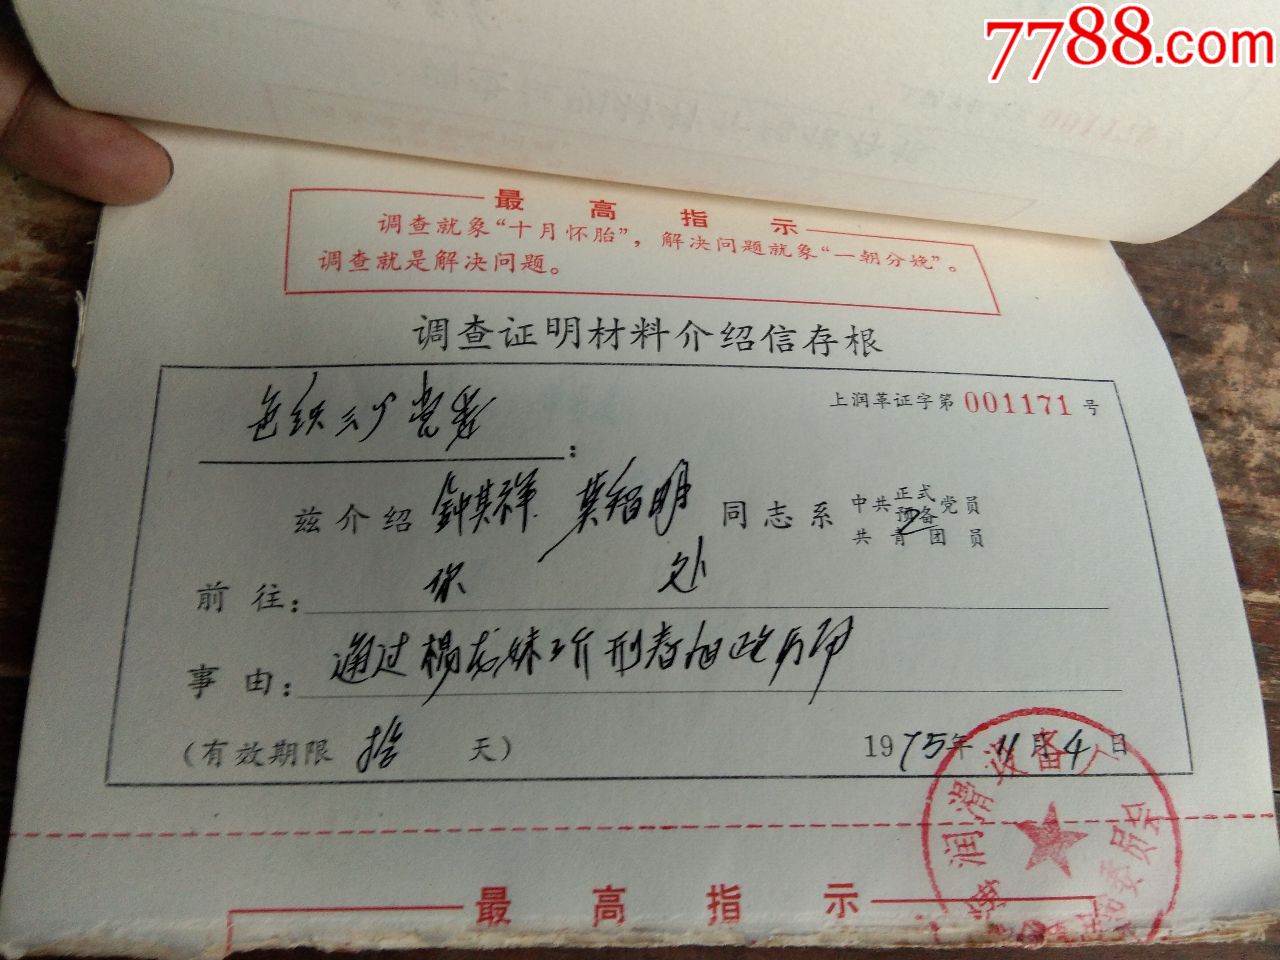 7788.com
最高指示
调查就象“十月怀胎”，解决问题就象“一朝分娩”。
调查就是解决问题。
调查证明材料介绍信存根
上润革证字第 001171 号
兹介绍 钟其祥 莫智明 同志系 中共正式预备党员
共青团员
前往：你处
事由：通过杨龙妹工作
（有效期限 拾 天）
1975年11月4日
润滑设备厂
委员会
最高指示